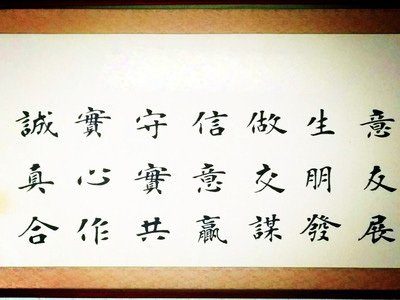 誠實守信做生意
真心實意交朋友
合作共贏謀發展